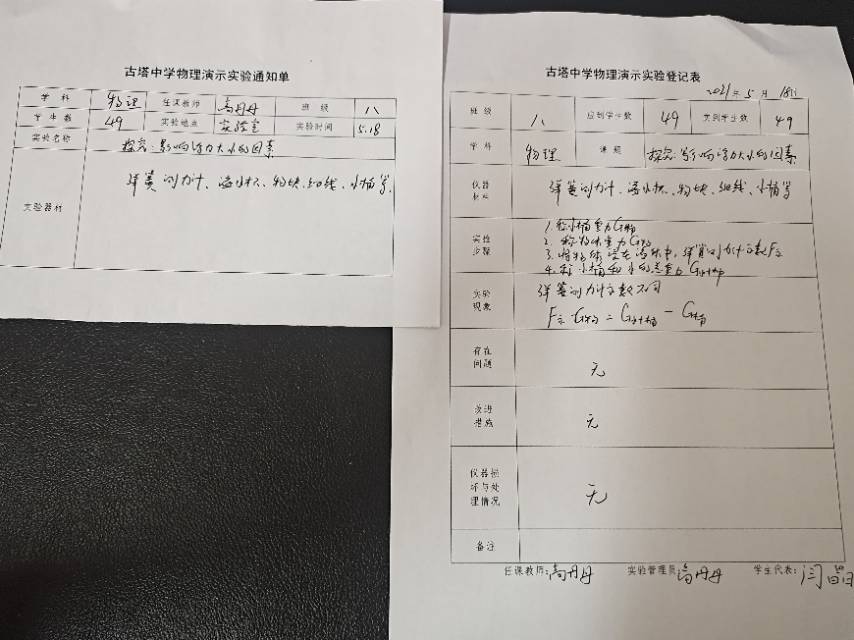 古塔中学物理演示实验通知单
学科 物理 任课教师 高丹丹 班级 八
学生数 49 实验地点 实验室 实验时间 5.18
实验名称 探究:影响浮力大小的因素
实验器材 弹簧测力计、溢水杯、物块、细线、小桶等
古塔中学物理演示实验登记表
2021年5月18日
班级 八 应到学生数 49 实到学生数 49
学科 物理 课题 探究:影响浮力大小的因素
仪器
弹簧测力计、溢水杯、物块、细线、小桶等
实验
步骤
1.称小桶重力G桶
2.称物体重力G物
3.将物体浸在液体中,弹簧测力计示数F示
4.称小桶和水的总重力G水+桶
实验
现象
弹簧测力计示数不同
存在
问题
无
改进
措施
无
仪器损
坏与处
理情况
无
备注
任课教师:高丹丹 实验管理员 高丹丹 学生代表: